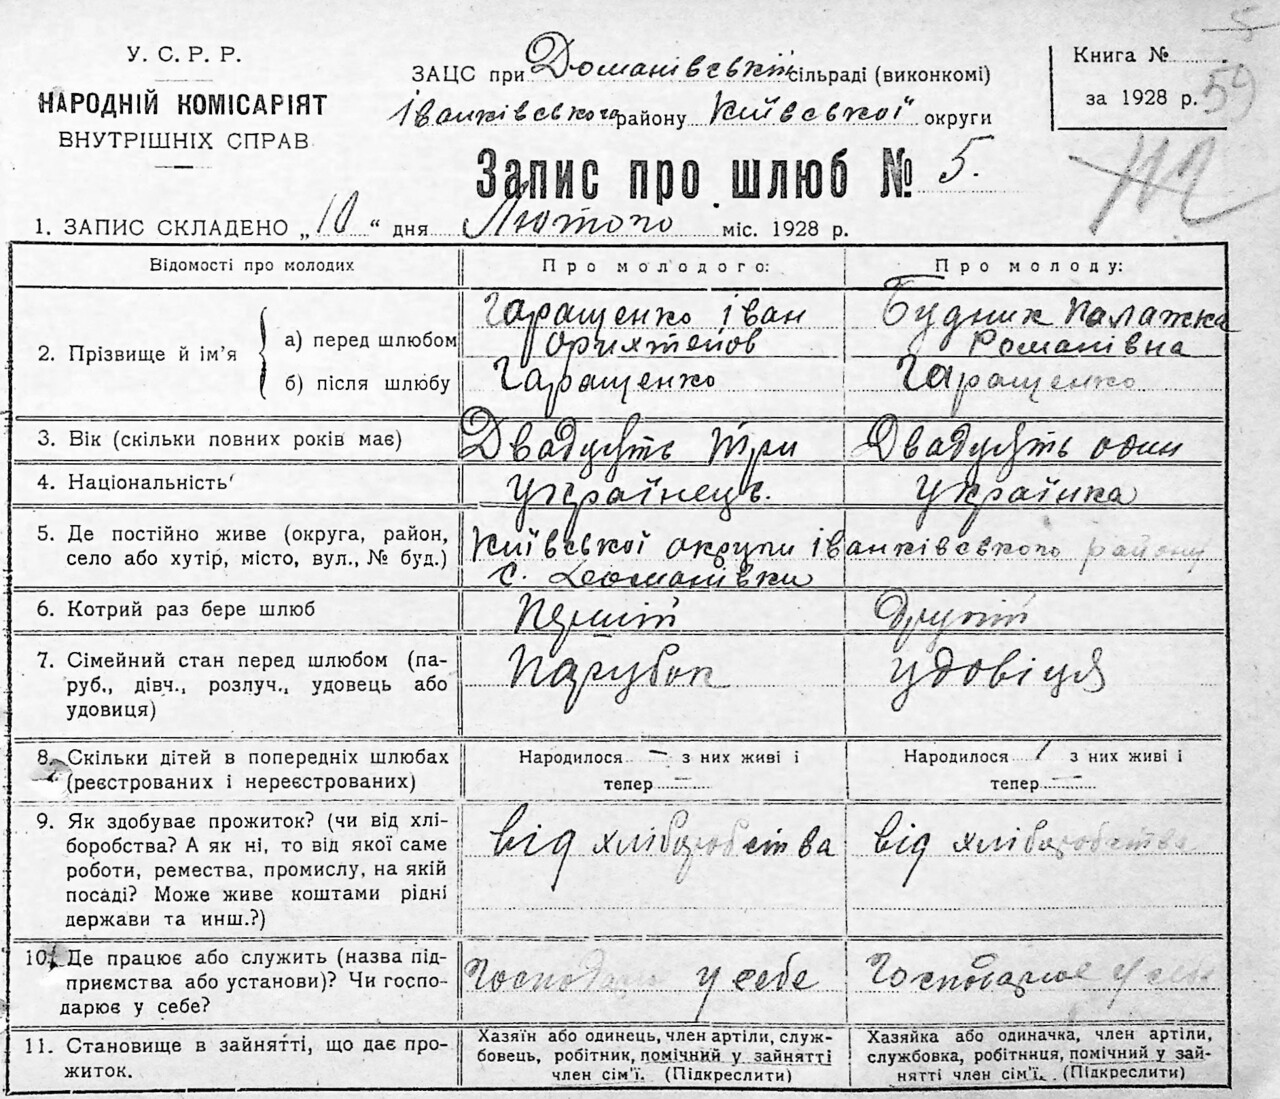 5
У. С. Р. Р.
НАРОДНІЙ КОМІСАРІЯТ
ВНУТРІШНІХ СПРАВ
ЗАЦС при Доманівській сільраді (виконкомі)
Іванківського району Київської округи
Книга №
за 1928 р. 59
Запис про шлюб № 5.
1. ЗАПИС СКЛАДЕНО „10“ дня Лютого міс. 1928 р.
Відомості про молодих
Про молодого:
Про молоду:
2. Прізвище й ім'я
а) перед шлюбом
Гаращенко Іван
Будник Палажка
Романівна
б) після шлюбу
Гаращенко
Гаращенко
3. Вік (скільки повних років має)
Двадцять три
Двадцять один
4. Національність
Українець.
Українка
5. Де постійно живе (округа, район,
село або хутір, місто, вул., № буд.)
Київської округи Іванківського району
с. Доманівки
6. Котрий раз бере шлюб
Перший
Другий
7. Сімейний стан перед шлюбом (па-
руб., дівч., розлуч., удовець або
удовиця)
Парубок
Удовіця
8. Скільки дітей в попередніх шлюбах
(реєстрованих і нереєстрованих)
Народилося — з них живі і
тепер
Народилося / з них живі і
тепер
9. Як здобуває прожиток? (чи від хлі-
боробства? А як ні, то від якої саме
роботи, ремества, промислу, на якій
посаді? Може живе коштами рідні
держави та инш.?)
Від хліборобства
Від хліборобства
10. Де працює або служить (назва під-
приємства або установи)? Чи госпо-
дарює у себе?
Господарює у себе
Господарює у себе
11. Становище в зайнятті, що дає про-
житок.
Хазяїн або одинець, член артілі, служ-
бовець, робітник, помічний у зайнятті
член сім'ї. (Підкреслити)
Хазяйка або одиначка, член артіли,
службовка, робітниця, помічний у зай-
нятті член сім'ї. (Підкреслити)